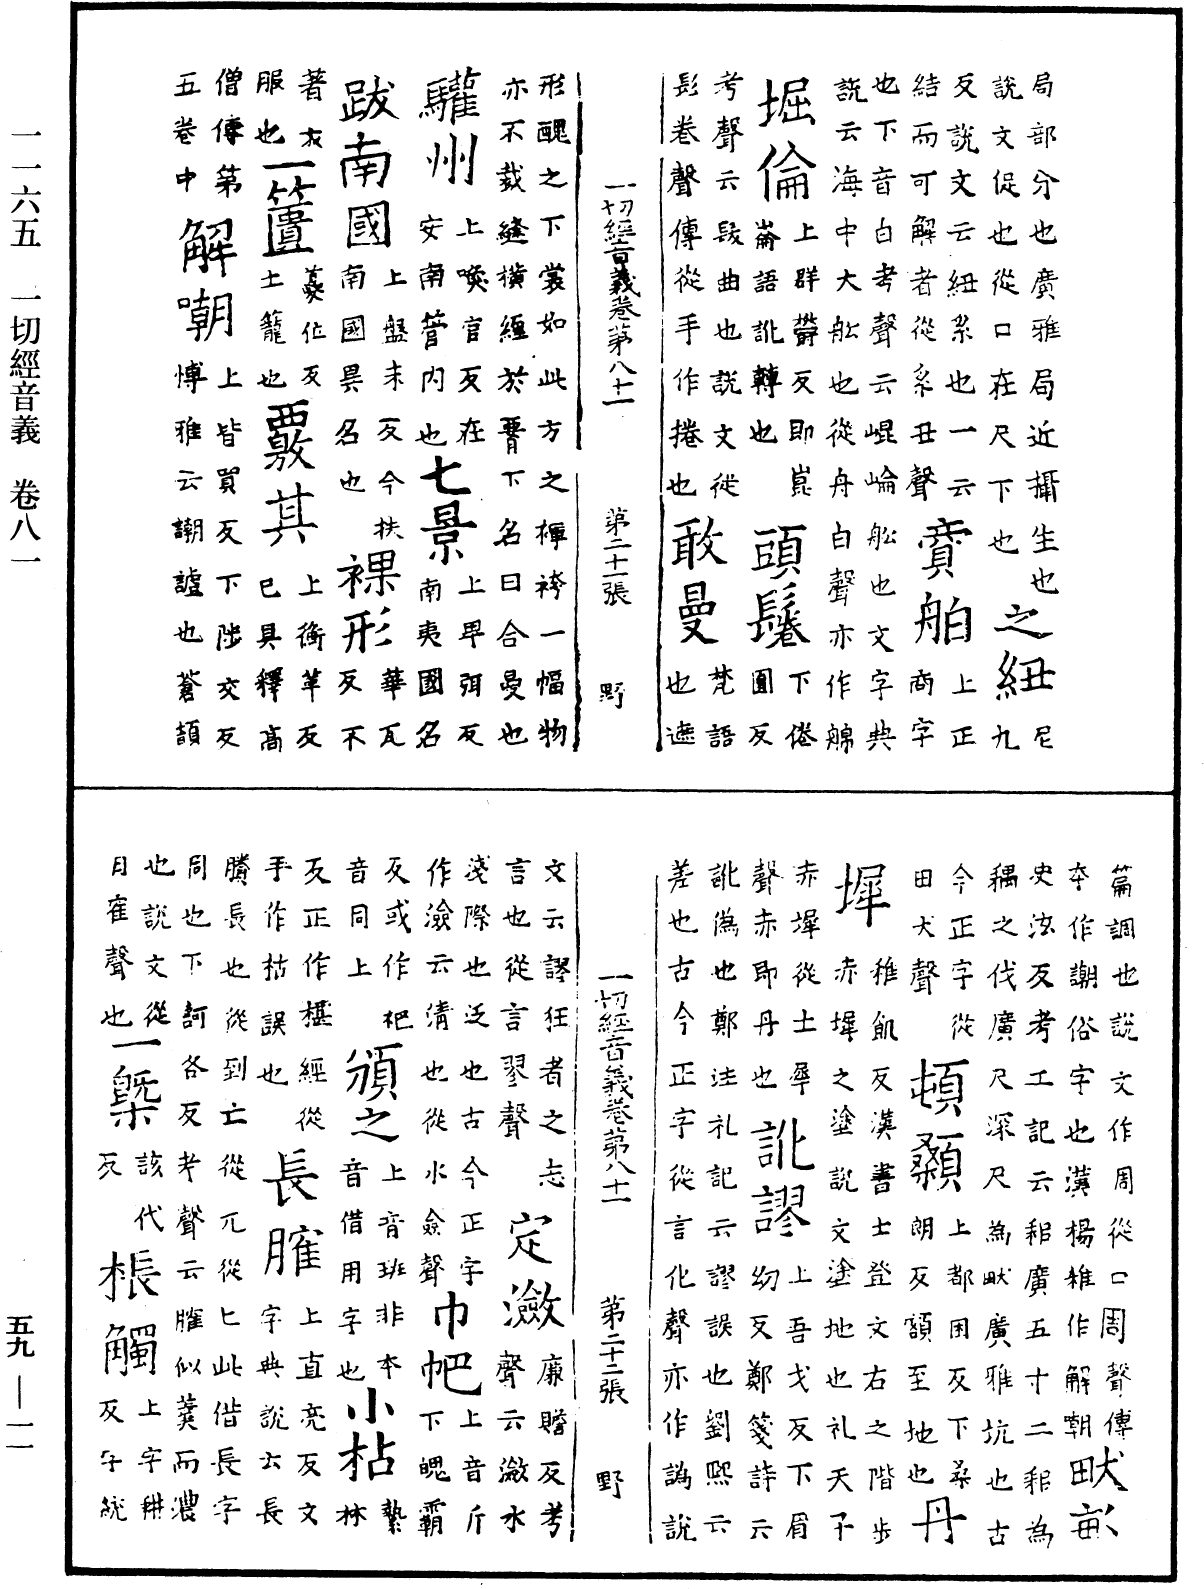 局部分也廣雅局近攝生也
說文促也從口在尺下也 之紐 尼九
反說文云紐系也一云
結而可解者從系丑聲 賣舶 上正商字
也下音白考聲云崐崘舩也文字典
說云海中大舩也從舟白聲亦作䑿
堀倫 上群欝反即崑崙語訛轉也 頭鬈 下倦圓反
考聲云髮曲也說文從
髟卷聲傳從手作捲也 敢曼 梵語也遮
一切經音義卷第八十一 第二十一張 野
形醜之下裳如此方之褌袴一幅物
亦不裁縫橫纏於𦝫下名曰合曼也
驩州 上喚官反在安南管內也 七景 上卑弭反南夷國名
跋南國 上盤末反今扶南國異名也 裸形 華瓦反不
著衣服也 一簣 蔓位反土籠也 覈其 上衡革反已具釋高
僧傳第五卷中 解嘲 上皆買反下陟交反愽雅云謿謔也蒼頡
篇調也說文作周從口周聲傳
夲作謿俗字也漢楊雄作解朝 畎畝
史泫反考工記云耜廣五寸二耜為
耦之伐廣尺深尺為畎廣雅坑也古
今正字從田犬聲 頓顙 上都困反下桑朗反額至地也 丹
墀 雉飢反漢書士登文右之階步赤墀之塗說文塗地也礼天子
赤墀從土犀聲赤即丹也 訛謬 上吾戈反下眉幼反鄭箋詩云
訛偽也鄭注礼記云謬誤也劉熙云
差也古今正字從言化聲亦作譌說
一切經音義卷第八十一 第二十二張 野
文云謬狂者之志言也從言翏聲 定瀲 廉贍反考聲云瀲水
淺際也泛也古今正字
作澰云清也從水僉聲 巾帊 上音斤下䰟霸
反或作祀音同上 頒之 上音班非本音借用字也 小枯 縶林
反正作椹經從手作枯誤也 長𦞦 上直亮反文字典說云長
騰長也從到亡從兀從匕此偕長字
同也下訶各反考聲云𦞦似羹而濃
也說文從月寉聲也 一槩 該代反 棖觸 上宅耕反字統
一一六五 一切經音義 卷八一
五九—一一